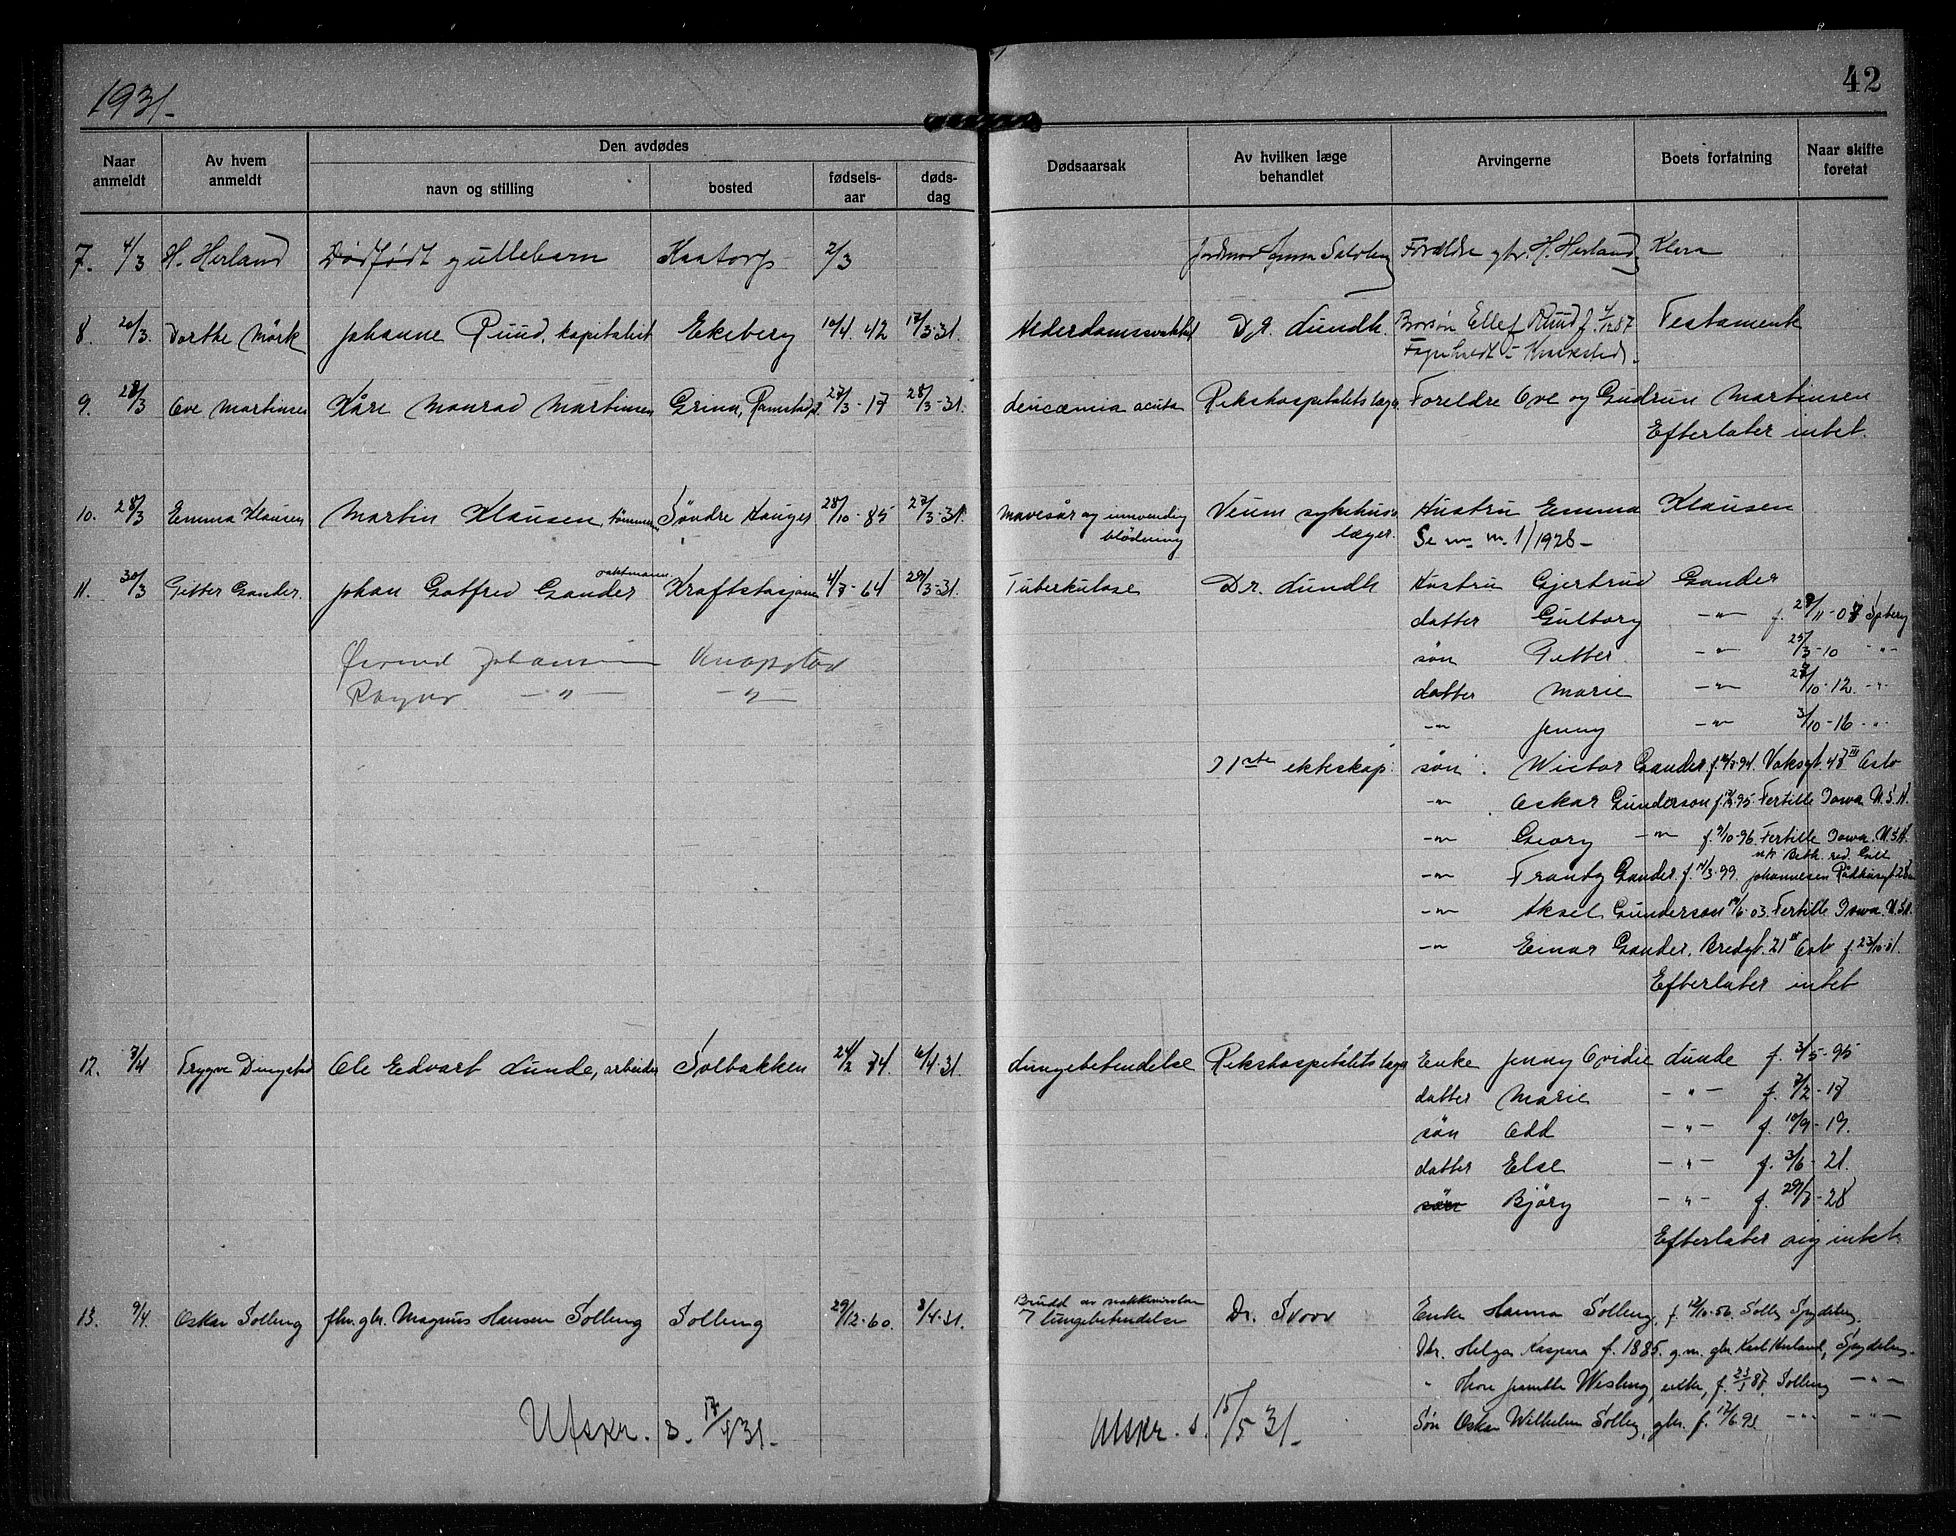 1931.
42
Naar anmeldt
Av hvem anmeldt
Den avdødes
navn og stilling
bosted
fødsels-aar
døds-dag
Dødsaarsak
Av hvilken læge behandlet
Arvingerne
Boets forfatning
Naar skifte foretat
7. 4/3 H. Herland Dødfødt gullebarn Kaatorp 2/3 Jordmor Foreldre gbr. H. Herland
8. 20/3. Dorthe Mørk Johanne Ruud, kapitalist Ekeberg 10/4. 42 17/3-31. Alderdomssvakhet Dr. Lundh. Brorsøn Ellef Ruud f. 4/12 87 Testamente
Kraakstad.
9. 28/3 Ove Martinsen Kåre Monrad Martinsen Grina, Ramstad 27/3-17 28/3-31. Leucæmia acuta Rikshospitalets læger Foreldre Ove og Gudrun Martinsen
Efterlater intet.
10. 28/3 Emma Klausen Martin Klausen, tømmerm. Søndre Hauger 28/10-85 27/3-31. Mavesår og innvendig Veum sykehus Hustru Emma Klausen
blødning læger. Se 1/1928-
11. 30/3 Gitter Gander. Johan Gotfred Gander vaktmann Kraftstasjonen 4/7-64 29/3-31. Tuberkulose Dr. Lundh Hustru Gjertrud Gander
datter Gulborg -"- f. 28/11-07 Spberg
Øivind Johansen Knapstad
søn Gitter. -"- 25/3-10 -"-
Ragnv -"- -"-
datter Marie -"- 27/10-12. -"-
-"- Jenny -"- 3/10-16 -"-
I 1ste ekteskap: søn Wictor Gander f. /3-94. Vaksgt. 43 III Oslo
-"- Oskar Gunderson f. 95. Fertille Iowa U.S.A.
-"- Georg -"- f. 9/10-96 Fertille Iowa. U.S.A.
-"- Frantz Gander. f. 14/3-99. Johannesen Rådhusgt 28
-"- Aksel Gunderson /6-03. Fertille Iowa. U.S.A.
-"- Einar Gander. Bredgt. 21 Oslo f. 23/10-01.
Efterlater intet
12. 7/4 Trygve Dingstad Ole Edvart Lunde, arbeider Solbakken 24/2 74. 6/4-31. Lungebetendelse Rikshospitalets læger Enke Jenny Ovidie Lunde f. 3/5-95
datter Marie -"- f. 7/2-18
søn Odd -"- f. 10/9-19.
datter Else -"- f. 3/6-21.
søn Bjørg -"- f. 29/7-28
Efterlater sig intet.
13. 9/4. Oskar Solleng fhv. gbr. Magnus Hansen Solleng Solleng 29/12-60. 8/4-31. Brudd av nakkehvirvlen Dr. Skorr Enke Hanna Solleng, f. 12/10-56. Solleng Spydeberg.
7 lungebetendelse
Dtr. Helga Kaspara f. 1885. g.m. gbr. Karl Herland, Spydeberg.
" Thora Wesleng, enke, f. 23/3 87, Solleng -"-
Søn Oskar Wilhelm Solleng, gbr. f. 17/6 93 -"- -"-
Utskr. s. 17/4 31.-
Utskr. s. 15/5 31.-